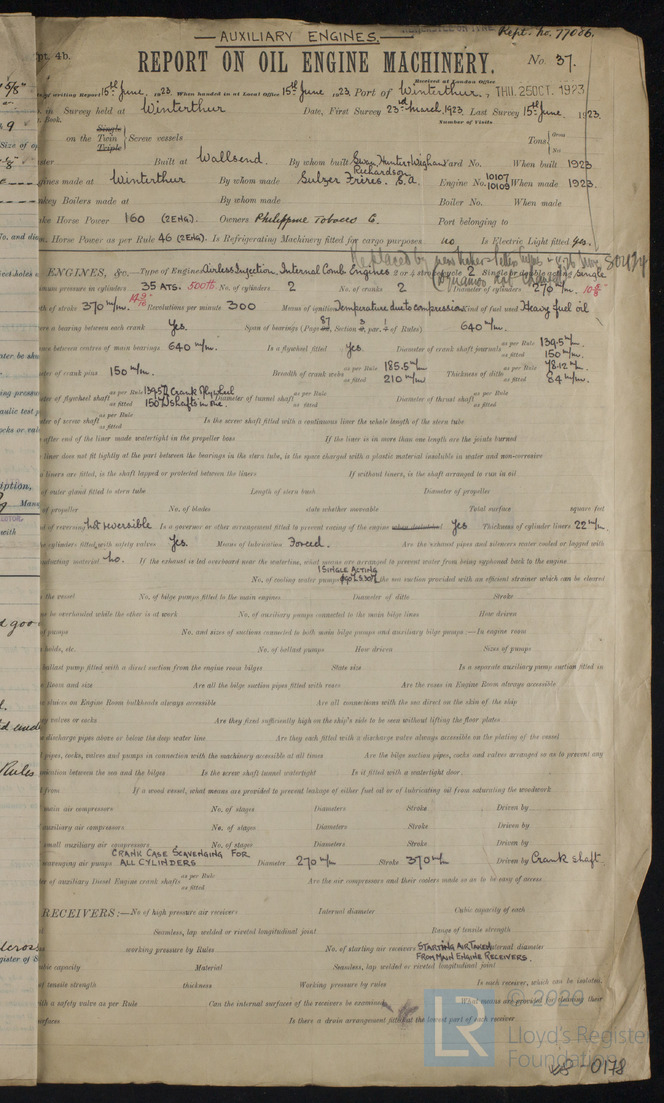 AUXILIARY ENGINES.
Rept. no. 77006.
pt. 4b.
REPORT ON OIL ENGINE MACHINERY.
No. 37.
Received at London Office
of writing Report 15th June, 1923. When handed in at Local Office 15th June, 1923. Port of Winterthur., THU. 25 OCT. 1923
in Survey held at Winterthur Date, First Survey 23rd March, 1923 Last Survey 15th June. 1923.
Book. Number of Visits
on the Single Twin Triple Screw vessels Tons Gross Net
Built at Wallsend. By whom built Swan, Hunter & Wigham Richardson Yard No. When built 1923
Engines made at Winterthur By whom made Sulzer Frères, S.A. Engine No. 10107 10109 When made 1923.
Boilers made at By whom made Boiler No. When made
Horse Power 160 (2 ENG). Owners Philippine Tobacco C. Port belonging to
Horse Power as per Rule 46 (2 ENG). Is Refrigerating Machinery fitted for cargo purposes no Is Electric Light fitted yes.
ENGINES, &c.—Type of Engines Airless Injection. Internal Comb Engines 2 or 4 stroke cycle 2 Single or double acting Single
pressure in cylinders 35 ATS. 500 No. of cylinders 2 No. of cranks 2 Diameter of cylinders 270 m/m.
of stroke 370 m/m. Revolutions per minute 300 Means of ignition Temperature due to compression Kind of fuel used Heavy fuel oil
a bearing between each crank Yes. Span of bearings (Page, Section, par. 4 of Rules) 640 m/m.
between centres of main bearings 640 m/m. Is a flywheel fitted yes. Diameter of crank shaft journals as per Rule 139.5 m/m. as fitted 150 m/m.
of crank pins 150 m/m. Breadth of crank webs as per Rule 185.5 m/m as fitted 210 m/m Thickness of ditto as per Rule 78.12 m/m. as fitted 84 m/m.
of flywheel shaft as per Rule 139.5 as fitted 150 Crank & flywheel shafts in one. Diameter of tunnel shaft as per Rule as fitted Diameter of thrust shaft as per Rule as fitted
of screw shaft as per Rule as fitted Is the screw shaft fitted with a continuous liner the whole length of the stern tube
after end of the liner made watertight in the propeller boss If the liner is in more than one length are the joints burned
liner does not fit tightly at the part between the bearings in the stern tube, is the space charged with a plastic material insoluble in water and non-corrosive
liners are fitted, is the shaft lapped or protected between the liners If without liners, is the shaft arranged to run in oil
of outer gland fitted to stern tube Length of stern bush Diameter of propeller
of propeller No. of blades state whether moveable Total surface square feet
of reversing Not reversible Is a governor or other arrangement fitted to prevent racing of the engine Yes Thickness of cylinder liners 22 m/m.
cylinders fitted with safety valves Yes. Means of lubrication Forced. Are the exhaust pipes and silencers water cooled or lagged with
conducting material no. If the exhaust is led overboard near the waterline, what means are arranged to prevent water from being syphoned back to the engine
No. of cooling water pumps 1 SINGLE ACTING Is the sea suction provided with an efficient strainer which can be cleared
the vessel No. of bilge pumps fitted to the main engines Diameter of ditto Stroke
be overhauled while the other is at work No. of auxiliary pumps connected to the main bilge lines How driven
of pumps No. and sizes of suctions connected to both main bilge pumps and auxiliary bilge pumps:—In engine room
holds, etc. No. of ballast pumps How driven Sizes of pumps
ballast pump fitted with a direct suction from the engine room bilges State size Is a separate auxiliary pump suction fitted in
Room and size Are all the bilge suction pipes fitted with roses Are the roses in Engine Room always accessible
sluices on Engine Room bulkheads always accessible Are all connections with the sea direct on the skin of the ship
valves or cocks Are they fixed sufficiently high on the ship's side to be seen without lifting the floor plates
discharge pipes above or below the deep water line Are they each fitted with a discharge valve always accessible on the plating of the vessel
pipes, cocks, valves and pumps in connection with the machinery accessible at all times Are the bilge suction pipes, cocks and valves arranged so as to prevent any
communication between the sea and the bilges Is the screw shaft tunnel watertight Is it fitted with a watertight door.
from If a wood vessel, what means are provided to prevent leakage of either fuel oil or of lubricating oil from saturating the woodwork
main air compressors No. of stages Diameters Stroke Driven by
auxiliary air compressors No. of stages Diameters Stroke Driven by
small auxiliary air compressors No. of stages Diameters Stroke Driven by
scavenging air pumps CRANK CASE SCAVENGING FOR ALL CYLINDERS Diameter 270 m/m Stroke 370 m/m Driven by Crank shaft
of auxiliary Diesel Engine crank shafts as per Rule as fitted Are the air compressors and their coolers made so as to be easy of access
RECEIVERS:—No of high pressure air receivers Internal diameter Cubic capacity of each
Seamless, lap welded or riveted longitudinal joint Range of tensile strength
working pressure by Rules No. of starting air receivers STARTING AIR TAKEN FROM MAIN ENGINE RECEIVERS. Internal diameter
capacity Material Seamless, lap welded or riveted longitudinal joint
tensile strength thickness Working pressure by rules Is each receiver, which can be isolated,
with a safety valve as per Rule Can the internal surfaces of the receivers be examined What means are provided for cleaning their
surfaces Is there a drain arrangement fitted at the lowest part of each receiver
LR
© 2020
Lloyd's Register
Foundation
W8-0178